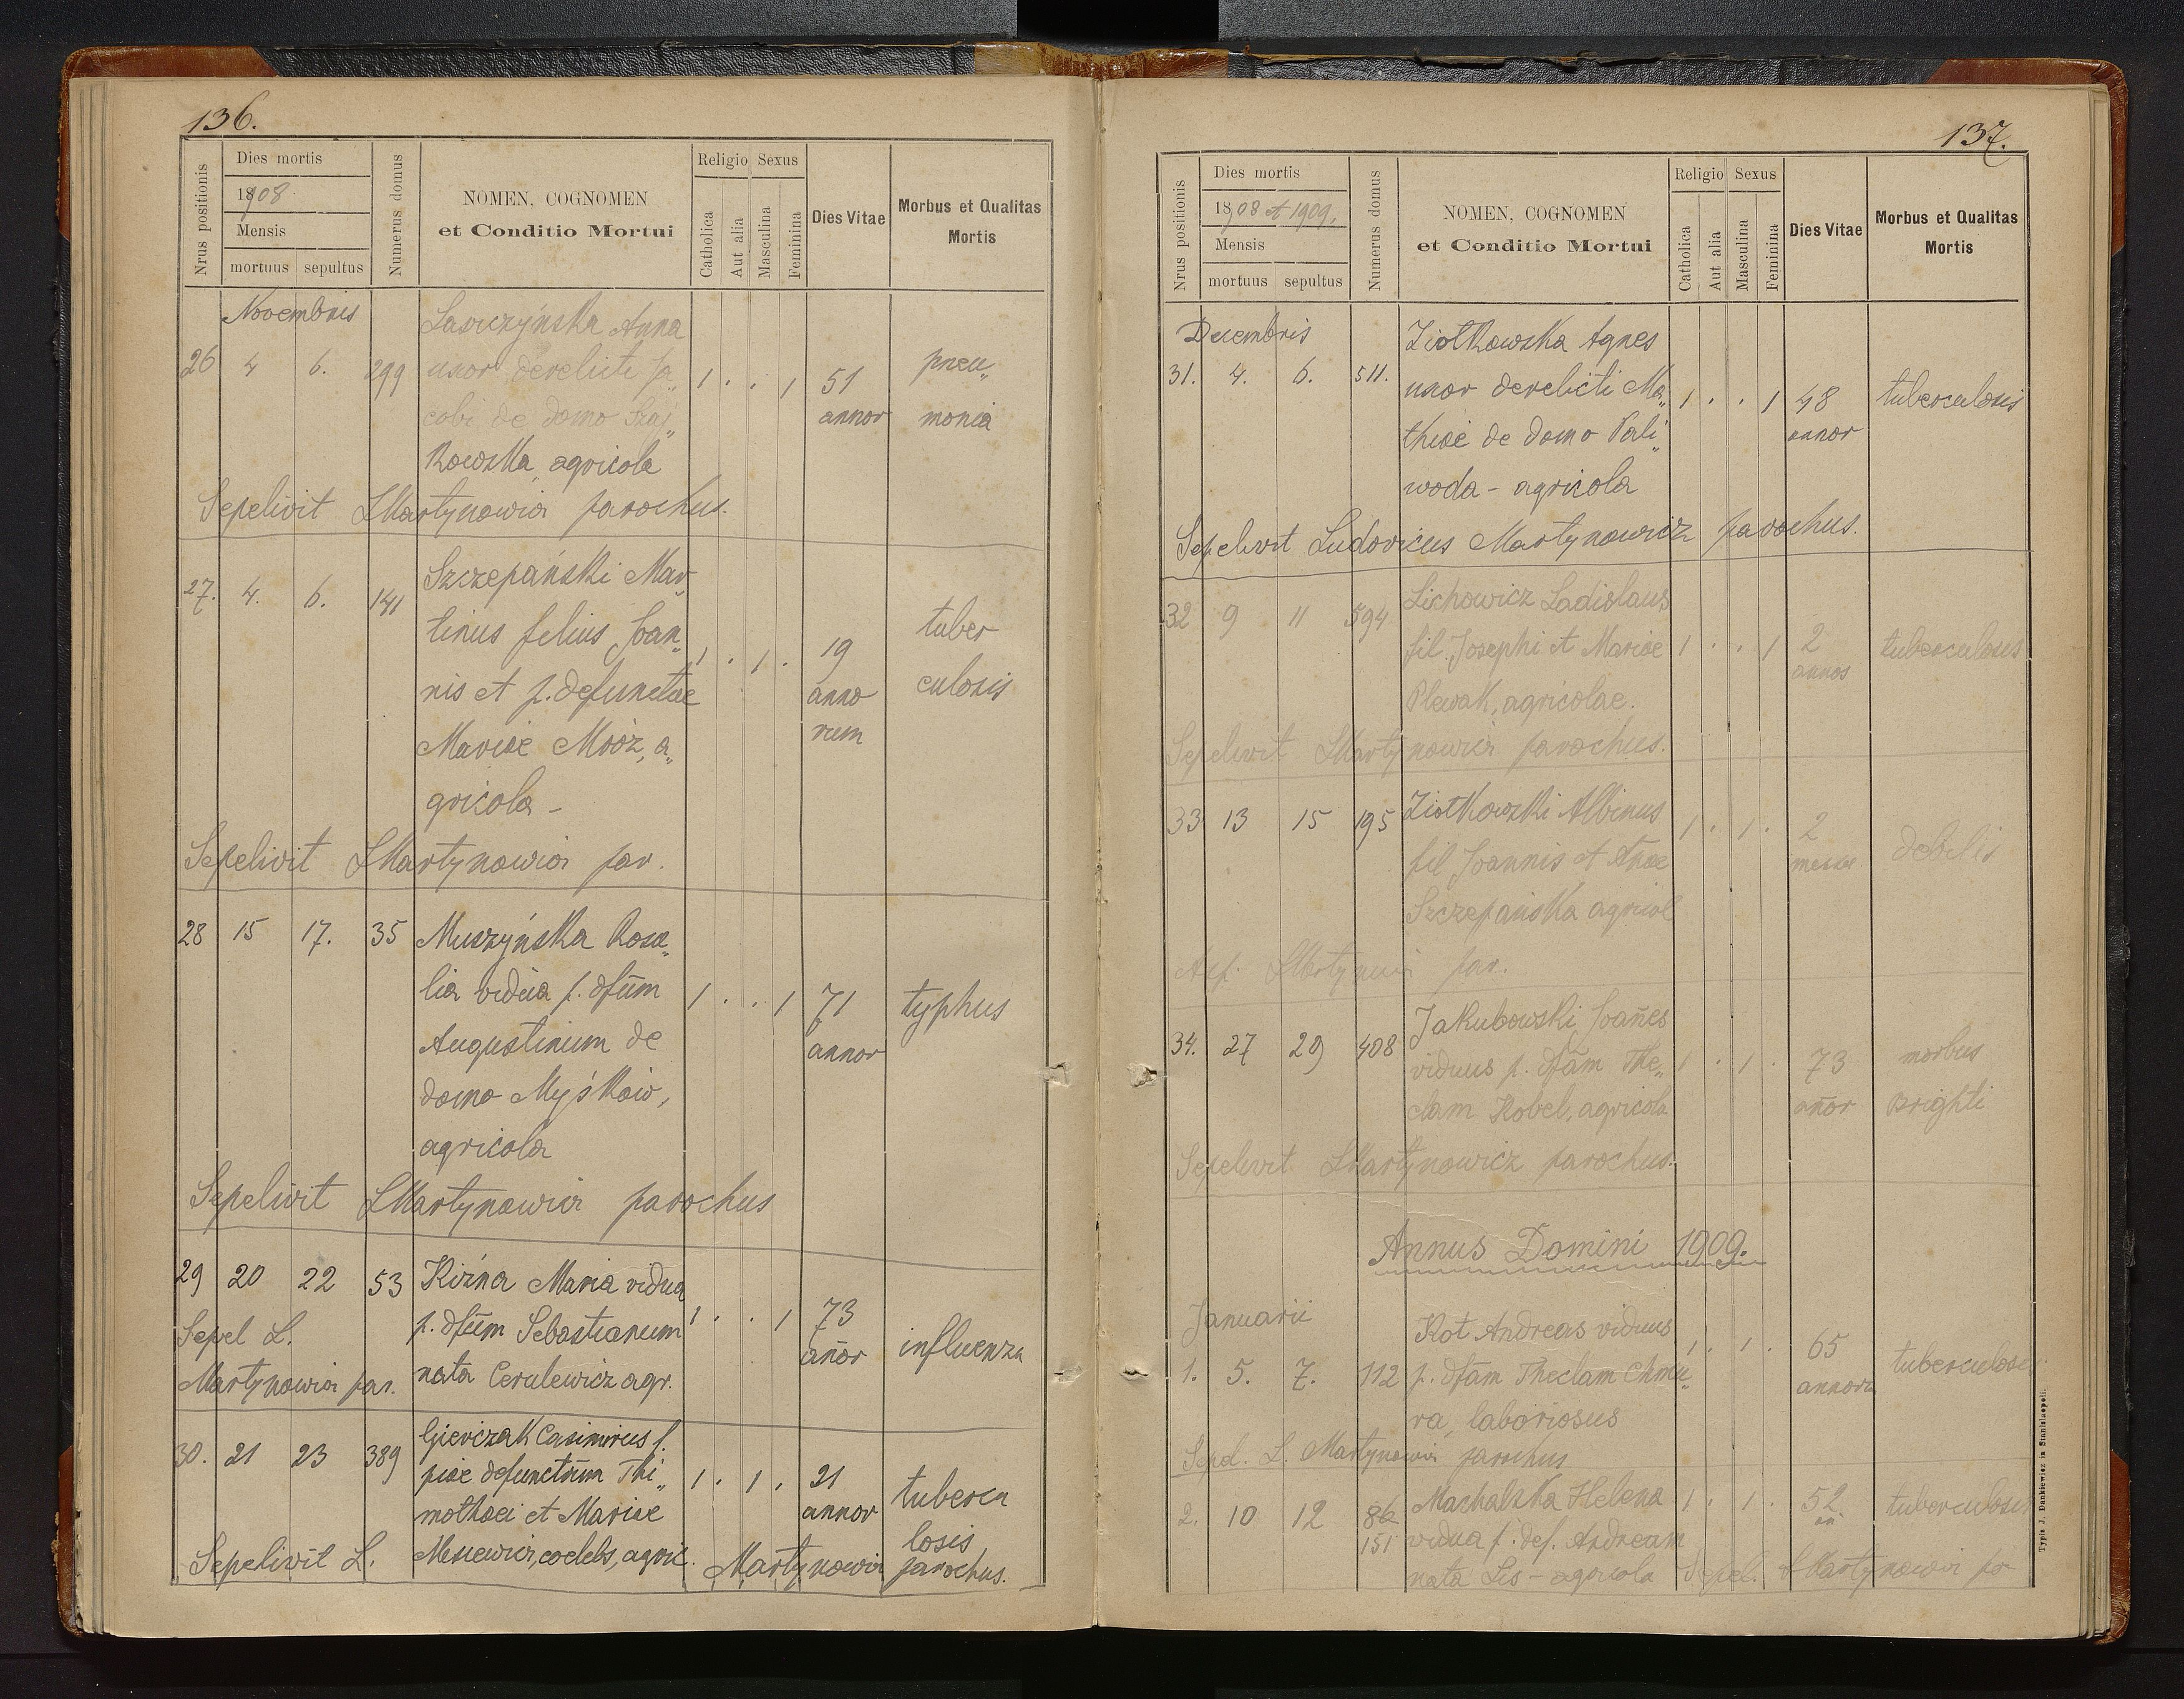 136.
Nrus positionis
Dies mortis
1908
Mensis
mortuus sepultus
Numerus domus
NOMEN, COGNOMEN
et Conditio Mortui
Religio Sexus
Catholica
Aut alia
Masculina
Feminina
Dies Vitae
Morbus et Qualitas
Mortis
Novembris
Anna
26 4 6. 299 uxor derelicti Ja„ 1 . . 1 51 pneu„
cobi de domo Szaj„ annor monia
kowska, agricola
Sepelivit LMartynowicz parochus.
27. 4. 6. 141 Szczepański Mar„
tinus felius Joan„ 1 . 1 . 19 tuber
nis et p. defunctae anno culosis
Mariae Mróz, a„ rum
gricola -
Sepelivit LMartynowicz par.
28 15 17. 35 Muszyńska Rosa„
lia vidua p. dfūm 1 . . 1 71 typhus
Augustinum de annor
domo Myśków,
agricola
Sepelivit LMartynowicz parochus
29 20 22 53 Maria vidua
Sepel L. p. dfūm Sebastianum 1 . . 1 73 influenza
Martynowicz par. nata Cerulewicz agr. añor
30. 21 23 389 Casimirus f.
piae defunctūm Thi„ 1 . 1 . 21 tubercu
mothaei et Mariae annor losis
coelebs, agric.
Sepelivit L. Martynowicz parochus.
137.
Nrus positionis
Dies mortis
1908 et 1909.
Mensis
mortuus sepultus
Numerus domus
NOMEN, COGNOMEN
et Conditio Mortui
Religio Sexus
Catholica
Aut alia
Masculina
Feminina
Dies Vitae
Morbus et Qualitas
Mortis
Decembris
Ziolkowska Agnes
31. 4. 6. 511. uxor derelicti Ma„ 1 . . 1 48 tuberculosis
thiae de domo Pali„ annor
woda - agricola
Sepelivit Ludovicus Martynowicz parochus.
32 9 11 594 Lichowicz Ladislaus
fil. Josephi et Mariae 1 . . 1 2 tuberculosis
Plewak, agricolae. annos
Sepelivit LMartynowicz parochus.
33 13 15 195 Ziolkowski Albinus 1 . 1 . 2 debilis
fil Joannis et Anae
Szczepańska agricol
LMartynowi par.
34. 27 29 408 Jakubowski Joañes
viduus p. dfām The„ 1 . 1 . 73 morbus
clam Kobel, agricola añor Brighti
Sepelivit LMartynowicz parochus.
Annus Domini 1909.
Januarii
Kot Andreas viduus 1 . 1 . 65
1. 5. 7. 112 p. dfām Theclam Chmu„ annoru tuberculose
ra, laboriosus
Sepel. L. Martynowicz parochus
2. 10 12 86 Marhalska Helena 1 . 1 . 52 tuberculosis
151 vidua p. def. Andream añ
nata Lis - agricola Sepel. LMartynowicz pa
Typis J. Dankiewicz in Stanislaopoli.